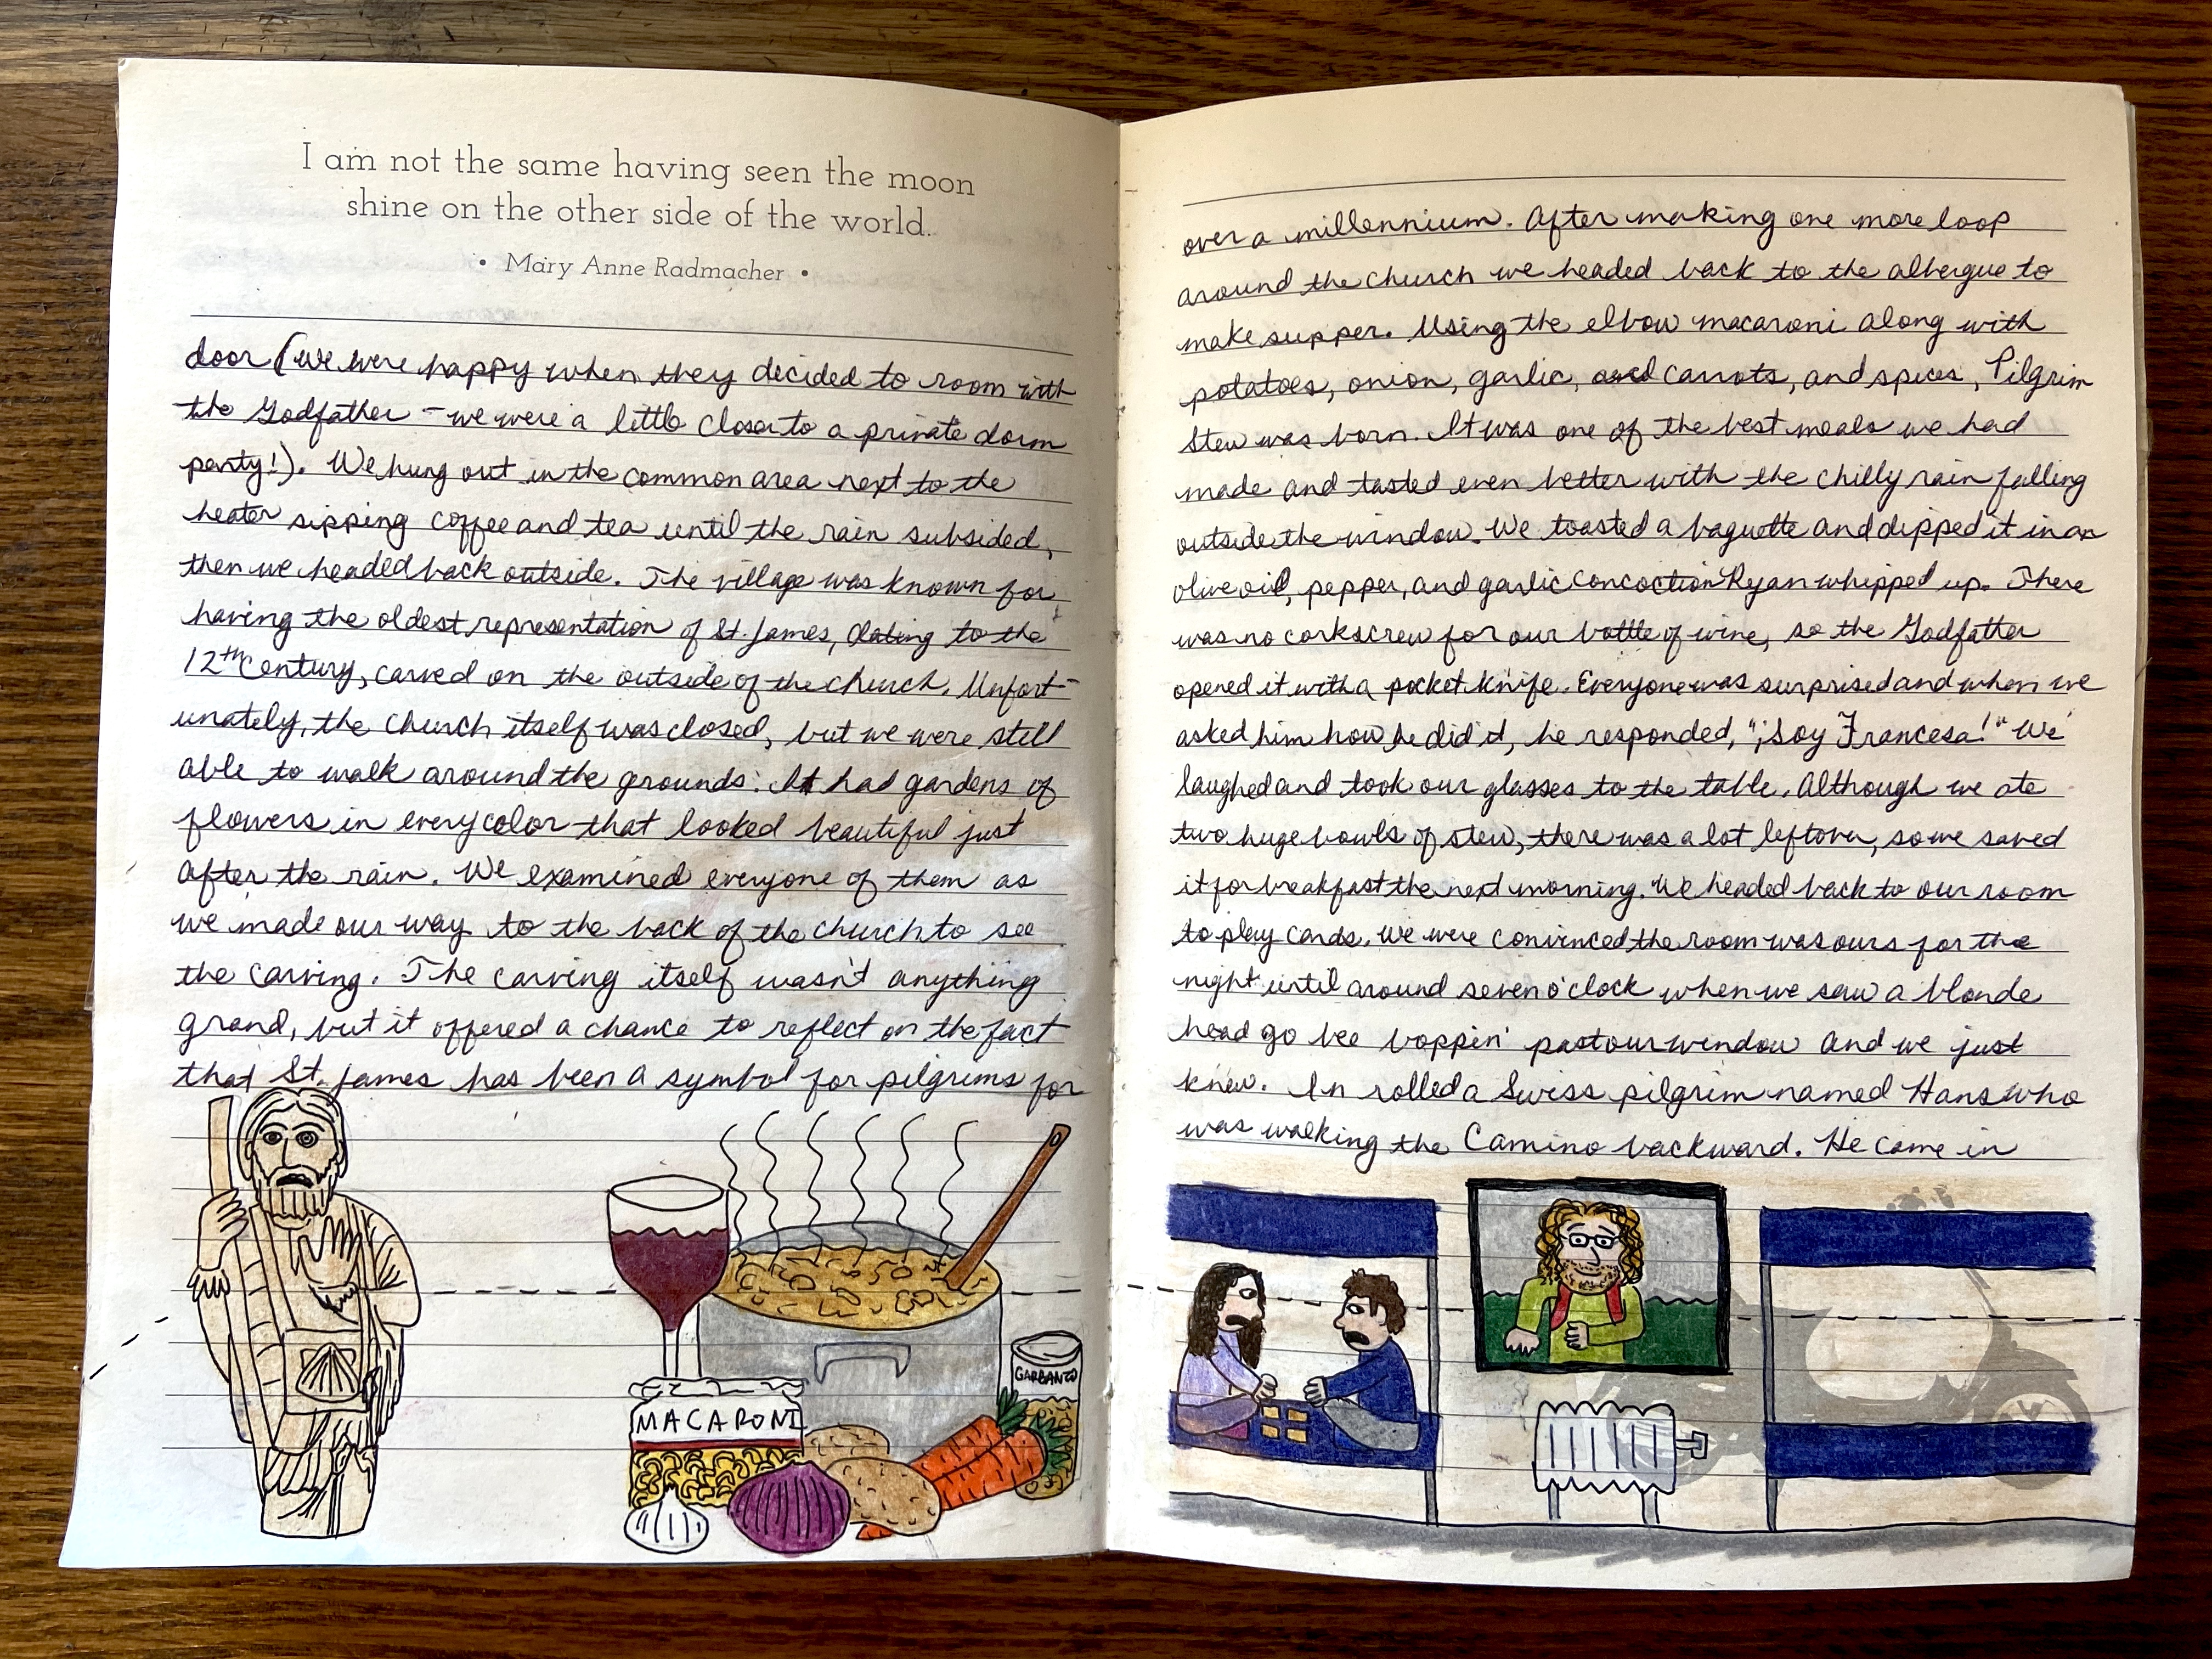 I am not the same having seen the moon
shine on the other side of the world.
• Mary Anne Radmacher •
door (we were happy when they decided to room with
the Godfather - we were a little closer to a private dorm
party!). We hung out in the common area next to the
heater sipping coffee and tea until the rain subsided,
then we headed back outside. The village was known for
having the oldest representation of St. James, dating to the
12th Century, carved on the outside of the church. Unfort-
unately, the church itself was closed, but we were still
able to walk around the grounds. It had gardens of
flowers in every color that looked beautiful just
after the rain. We examined everyone of them as
we made our way to the back of the church to see
the carving. The carving itself wasn't anything
grand, but it offered a chance to reflect on the fact
that St. James has been a symbol for pilgrims for
MACARONI
GARBANZO
over a millennium. After making one more loop
around the church we headed back to the albergue to
make supper. Using the elbow macaroni along with
potatoes, onion, garlic, and carrots, and spices, Pilgrim
Stew was born. It was one of the best meals we had
made and tasted even better with the chilly rain falling
outside the window. We toasted a baguette and dipped it in an
olive oil, pepper, and garlic concoction Ryan whipped up. There
was no corkscrew for our bottle of wine, so the Godfather
opened it with a pocket knife. Everyone was surprised and when we
asked him how he did it, he responded, "¡Soy Francesa!" We
laughed and took our glasses to the table. Although we ate
two huge bowls of stew, there was a lot leftover, so we saved
it for breakfast the next morning. We headed back to our room
to play cards. We were convinced the room was ours for the
night until around seven o'clock when we saw a blonde
head go bee boppin' past our window and we just
knew. In rolled a Swiss pilgrim named Hans who
was walking the Camino backward. He came in